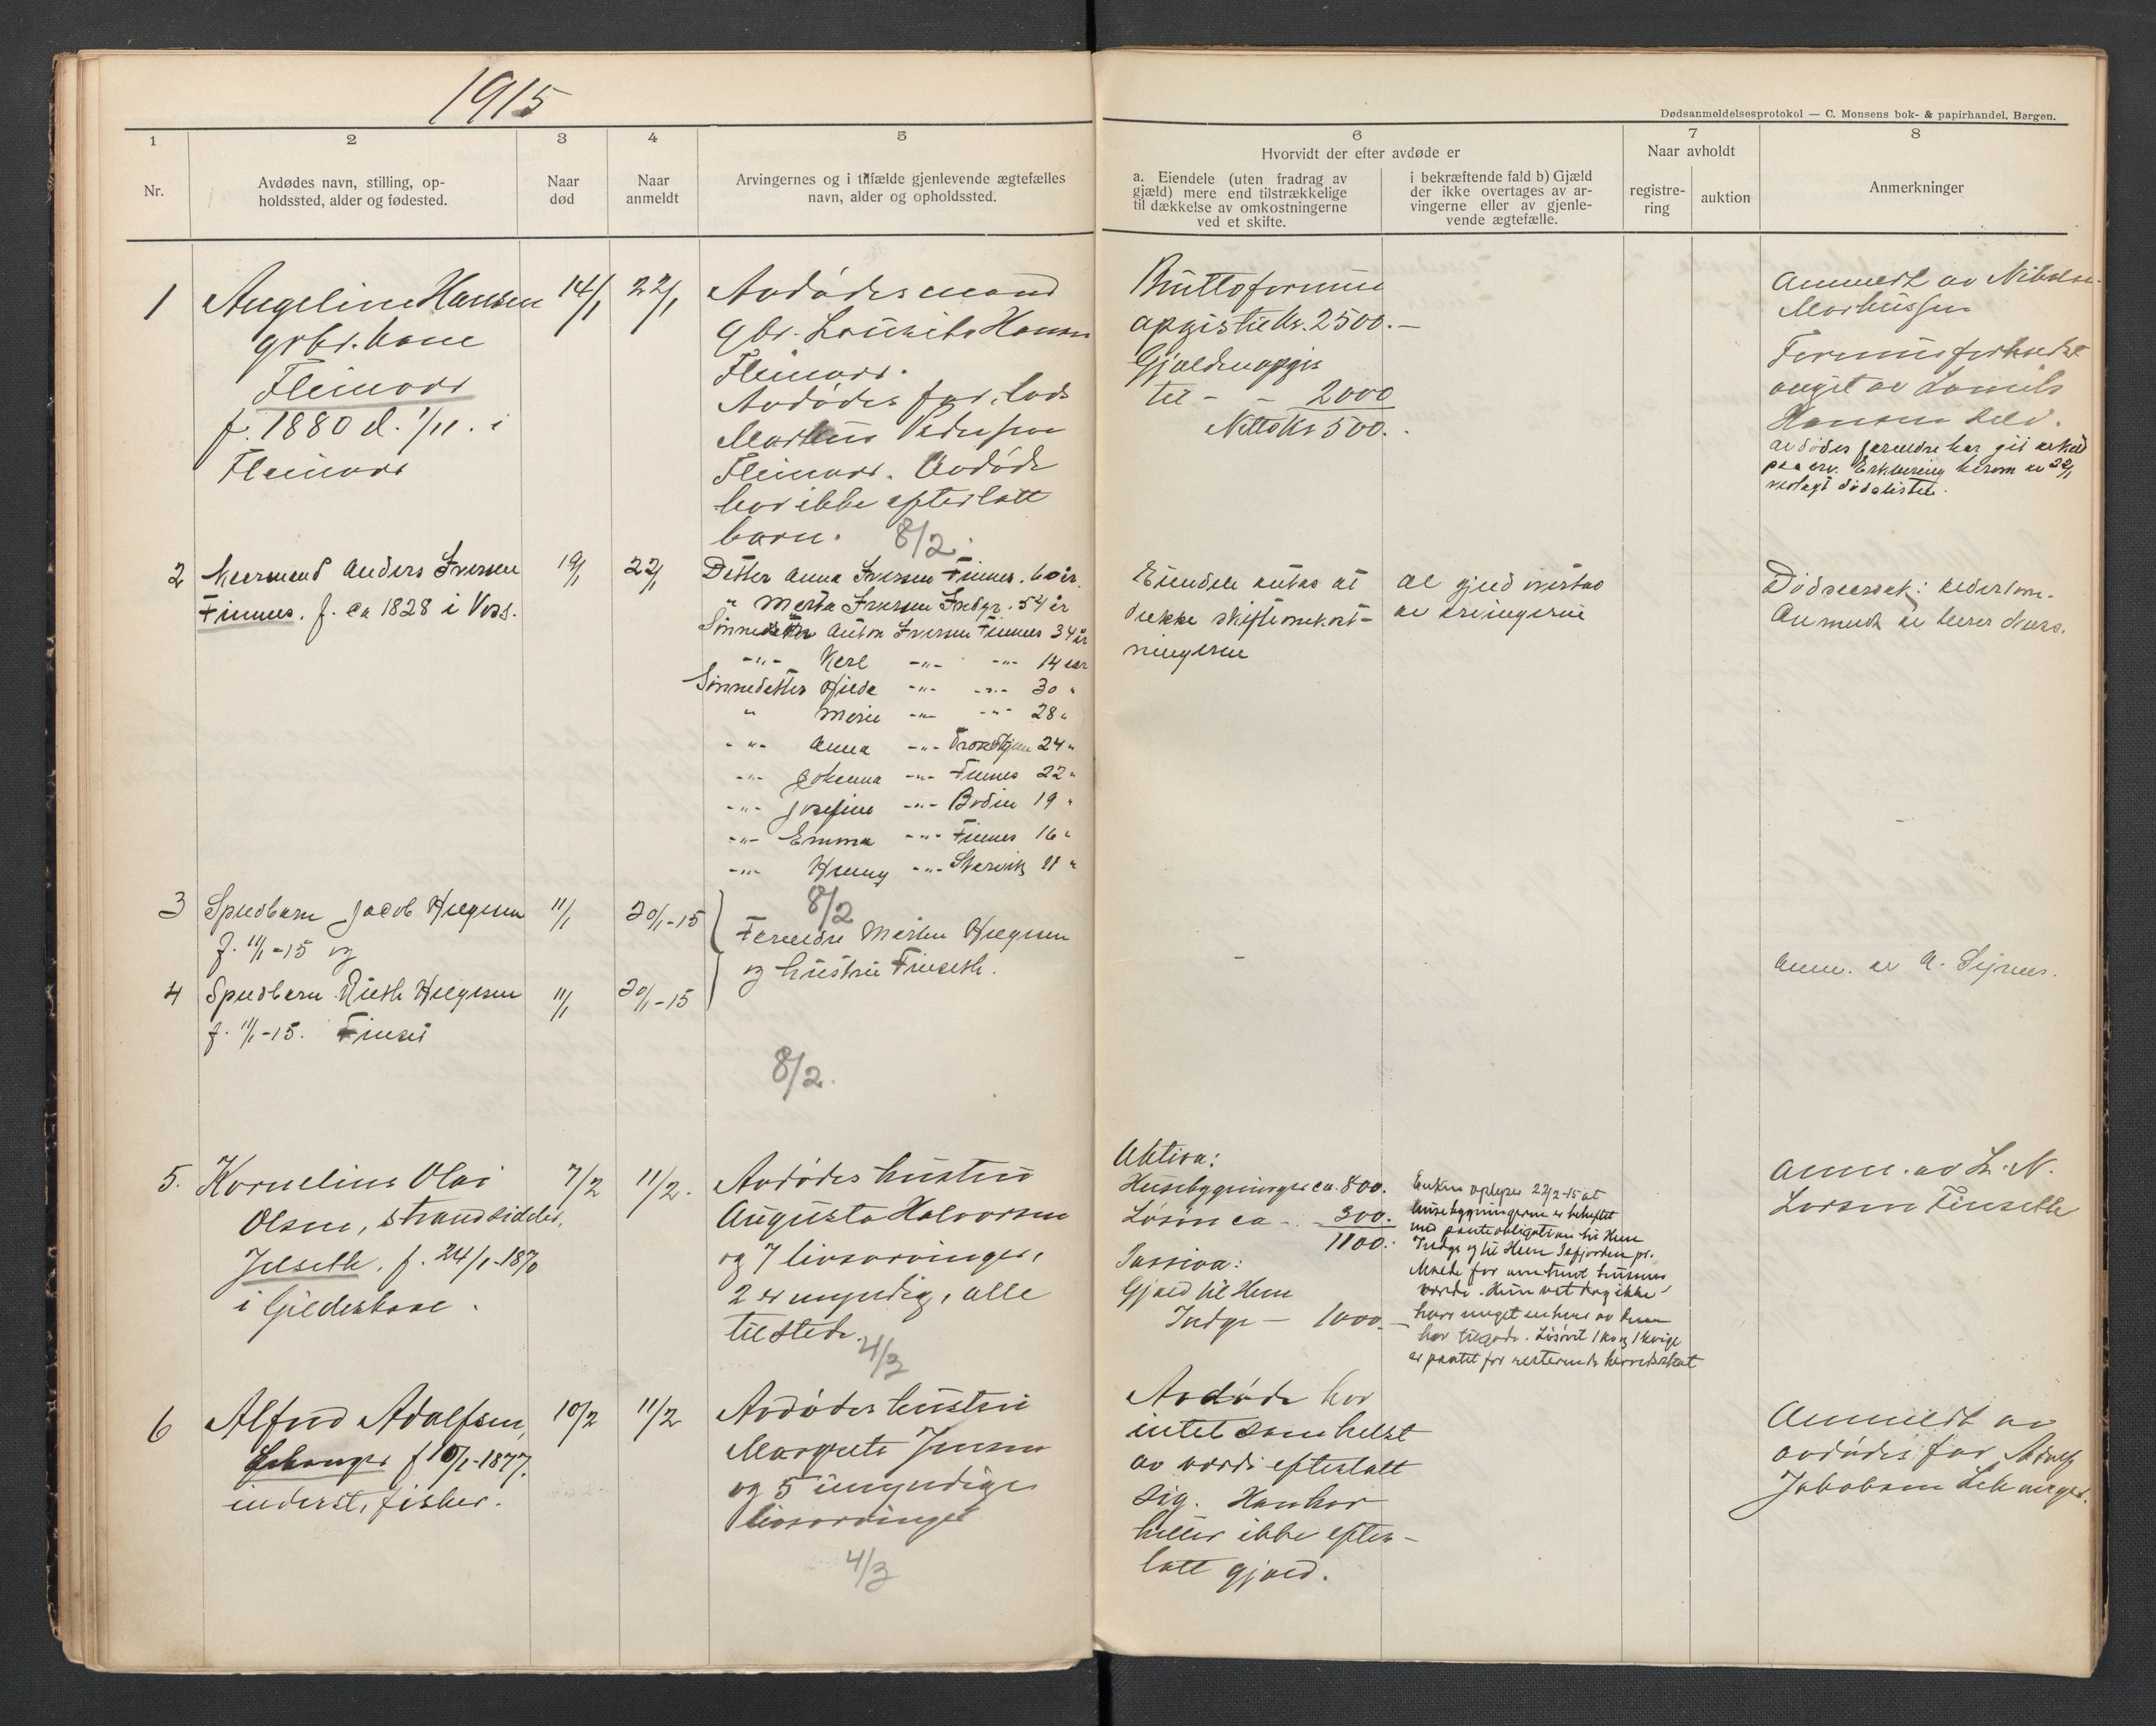 1915
Dødsanmeldelsesprotokol — C. Monsens bok- & papirhandel, Bergen.
1
2
3
4
5
6
7
8
Nr.
Avdødes navn, stilling, op-
holdssted, alder og fødested.
Naar
død
Naar
anmeldt
Arvingernes og i tilfælde gjenlevende ægtefælles
navn, alder og opholdssted.
Hvorvidt der efter avdøde er
a. Eiendele (uten fradrag av
gjæld) mere end tilstrækkelige
til dækkelse av omkostningerne
ved et skifte.
i bekræftende fald b) Gjæld
der ikke overtages av ar-
vingerne eller av gjenle-
vende ægtefælle.
Naar avholdt
registre-
ring
auktion
Anmerkninger
1
Angeline Hansen
grbr. kone
Fleinvær
f. 1880 d. 1/11. i
Fleinvær
14/1
22/1
Avdødes mand
gbr. Hansen
Fleinvær.
Avdødes far, lods
Markus Pedersen
Fleinvær. Avdøde
har ikke efterlatt
barn. 8/2.
Bruttoformue
opgis til kr. 2500.—
Gjælden opgis
til - - 2000
Netto Kr 500.
Anmeldt av
Markussen
Hansen selv.
avdødes forældre har git avkald
paa arv. Erklæring herom av 22/1
vedlagt dødslisten.
2
Kaarmand Anders Iversen
Finnes. f. ca 1828 i Vers.
19/1
22/1
Datter Anna Iversen Finnes. 60 år.
" Marta Iversen 54 år
Sønnesøn Anton Iversen Finnes 34 år
-"- Karl -"- -"- 14 aar
Sønnedatter Hilda -"- -"- 30 "
" Marie -"- -"- 28 "
-"- Anna -"- Trondhjem 24 "
-"- Johanna -"- Finnes 22 "
-"- Josefine -"- Bodin 19 "
-"- Emma -"- Finnes 16 "
-"- Henny -"- 11 "
8/2
Eiendele antas at
dække skifteomkost-
ningerne
al gjæld overtas
av arvingerne
Dødsaarsak: alderdom.
Anmeldt av
3
Spedbarn Jacob Helgesen
f. 11/1-15 og
11/1
20/1-15
Forældre Morten Helgesen
og hustru Finseth.
-
Anm. av A.
4
Spedbarn Ruth Helgesen
f. 11/1-15. Finset
11/1
20/1-15
8/2.
5.
Kornelius Olai
Olsen, strandsidder,
Jelseth. f. 24/1-1870
i Gildeskaal.
7/2
11/2.
Avdødes hustru
Augusta Halvorsen
og 7 livsarvinger,
2 er myndig, alle
tilstede.
4/3
Aktiva:
Husebygninger ca. 800.
Løsøre ca - 300.
1100.
Passiva:
Gjæld til Hem
Indyr — 1000.—
Enken oplyser 22/2-15 at
husebygningerne er beheftet
med panteobligation til Hem
Indyr og til Hem pr.
for omtrent husenes
værdi. Hun vet dog ikke
hvor meget enhver av dem
har tilgode. Løsøret 1 ko og 1 kvige
er pantet for resterende herredsskat
Anm. av L. N.
Larsen Finseth
6
Alfred Adolfsen,
f 10/1-1877.
inderst, fisker.
10/2
11/2
Avdødes hustru
Margrete Jensen
og 5 umyndige
livsarvinger
4/3
Avdøde har
intet somhelst
av værdi efterlatt
sig. Han har
heller ikke efter-
latt gjæld.
Anmeldt av
avdødes far Adolf
Jakobsen